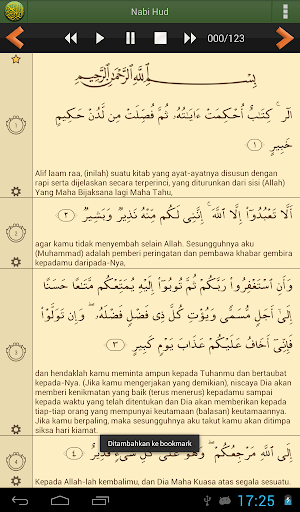 Nabi Hud
000/123
بِسْمِ ٱللَّهِ ٱلرَّحْمَٰنِ ٱلرَّحِيمِ
الٓر ۚ كِتَٰبٌ أُحْكِمَتْ ءَايَٰتُهُۥ ثُمَّ فُصِّلَتْ مِن لَّدُنْ حَكِيمٍ
خَبِيرٍ ١
Alif laam raa, (inilah) suatu kitab yang ayat-ayatnya disusun dengan
rapi serta dijelaskan secara terperinci, yang diturunkan dari sisi (Allah)
Yang Maha Bijaksana lagi Maha Tahu,
أَلَّا تَعْبُدُوٓا۟ إِلَّا ٱللَّهَ ۚ إِنَّنِى لَكُم مِّنْهُ نَذِيرٌ وَبَشِيرٌ ٢
agar kamu tidak menyembah selain Allah. Sesungguhnya aku
(Muhammad) adalah pemberi peringatan dan pembawa khabar gembira
kepadamu daripada-Nya,
وَأَنِ ٱسْتَغْفِرُوا۟ رَبَّكُمْ ثُمَّ تُوبُوٓا۟ إِلَيْهِ يُمَتِّعْكُم مَّتَٰعًا حَسَنًا
إِلَىٰٓ أَجَلٍ مُّسَمًّى وَيُؤْتِ كُلَّ ذِى فَضْلٍ فَضْلَهُۥ ۖ وَإِن تَوَلَّوْا۟
فَإِنِّىٓ أَخَافُ عَلَيْكُمْ عَذَابَ يَوْمٍ كَبِيرٍ ٣
dan hendaklah kamu meminta ampun kepada Tuhanmu dan bertaubat
kepada-Nya. (Jika kamu mengerjakan yang demikian), niscaya Dia akan
memberi kenikmatan yang baik (terus menerus) kepadamu sampai
kepada waktu yang telah ditentukan dan Dia akan memberikan kepada
tiap-tiap orang yang mempunyai keutamaan (balasan) keutamaannya.
Jika kamu berpaling, maka sesungguhnya aku takut kamu akan ditimpa
siksa hari kiamat.
Ditambahkan ke bookmark
إِلَى ٱللَّهِ مَرْجِعُكُمْ ۖ وَهُوَ عَلَىٰ كُلِّ شَىْءٍ قَدِيرٌ ٤
Kepada Allah-lah kembalimu, dan Dia Maha Kuasa atas segala sesuatu.
17:25